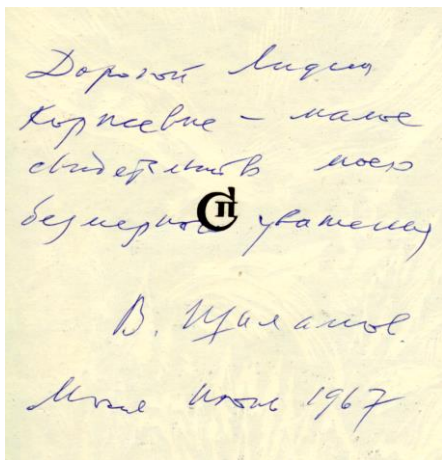 Дорогой Лидии
Корнеевне – малое
свидетельство моего
безмерного уважения
В. Шаламов.
Москва июнь 1967